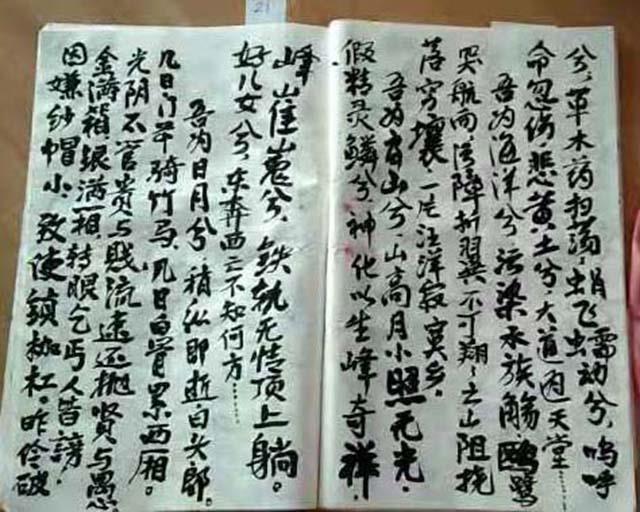 21
兮,草木药扫荡,蜎飞虫蠕动兮,呜呼
命忽伤,悲黄土兮大道通天堂……
吾为海洋兮污染水族觞鸥鹭
哭航而污障折翼不可翔,之山阻挠
落穷壤,一片汪洋寂寞乡。
吾为高山兮山高月小照无光,
假精灵鳞兮,神化以生峰奇祥,
峰崔嵬兮,铁轨无情顶上躺。
好儿女兮,东奔西亡不知何方……
吾为日月兮,稍纵即逝白头郎。
几日门草骑竹马,几日白骨累西厢。
光阴不管贵与贱流逐还抛贤与愚
金满箱银满箱,转眼乞丐人皆谤,
因嫌纱帽小致使锁枷杠。昨怜破